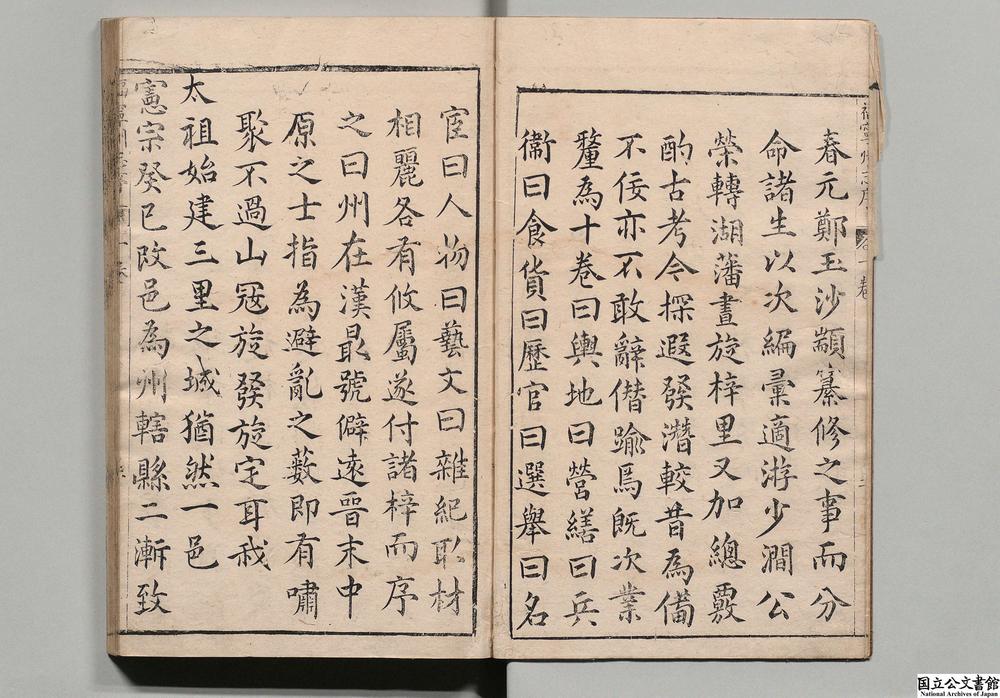 春元鄭玉沙顓纂修之事而分
命諸生以次編彚適游少澗公
榮轉湖藩晝旋梓里又加總覈
酌古考今探遐發潛較昔為備
不佞亦不敢辭僭踰焉既次業
釐為十卷曰輿地曰營繕曰兵
衞曰食貨曰歷官曰選舉曰名
宦曰人物曰藝文曰雜紀取材
相麗各有攸屬遂付諸梓而序
之曰州在漢最號僻遠晉末中
原之士指為避亂之藪即有嘯
聚不過山冦旋發旋定耳我
太祖始建三里之城猶然一邑
憲宗癸巳改邑為州轄縣二漸致
福寧州志序
卷一
国立公文書館
National Archives of Japan